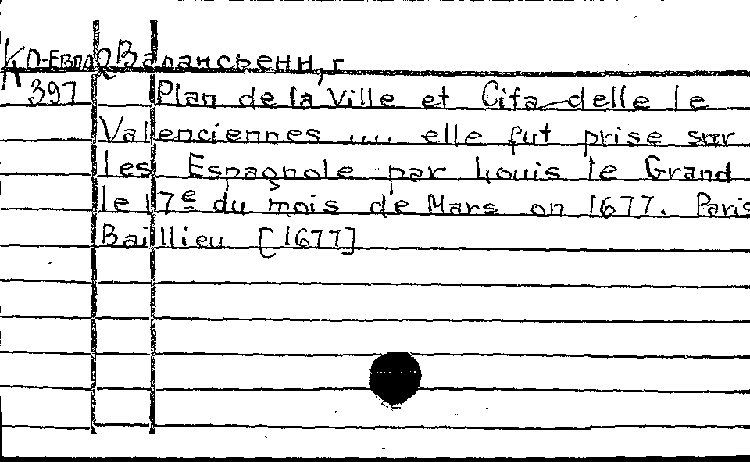 К О-Евр Валансьенн, г
397 Plan de la Ville et Cita delle le
Valenciennes .... elle fut prise sur
les Espagnole par Louis le Grand
le 17e du mois de Mars on 1677. Paris
Baillieu [1677]